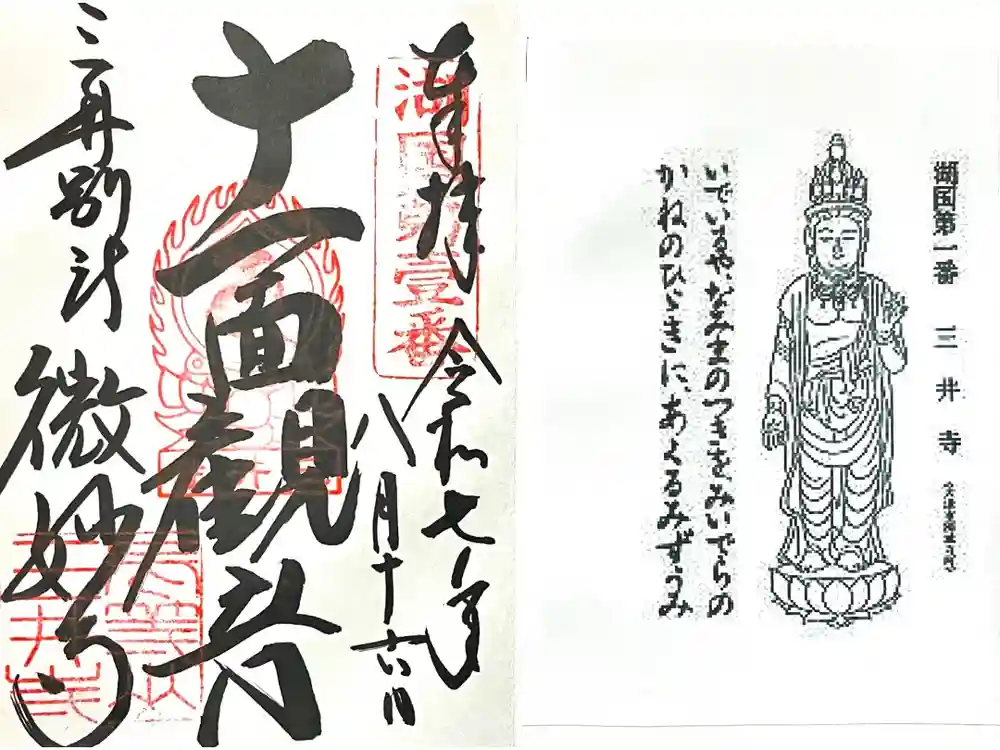 奉拝 令和七年
八月十六日
湖国第壹番
十一面観音
三井別所 微妙寺
湖国第一番 三井寺
いでいるや、なみまのつきをみいでらの
かねのひびきに、あくるみずうみ